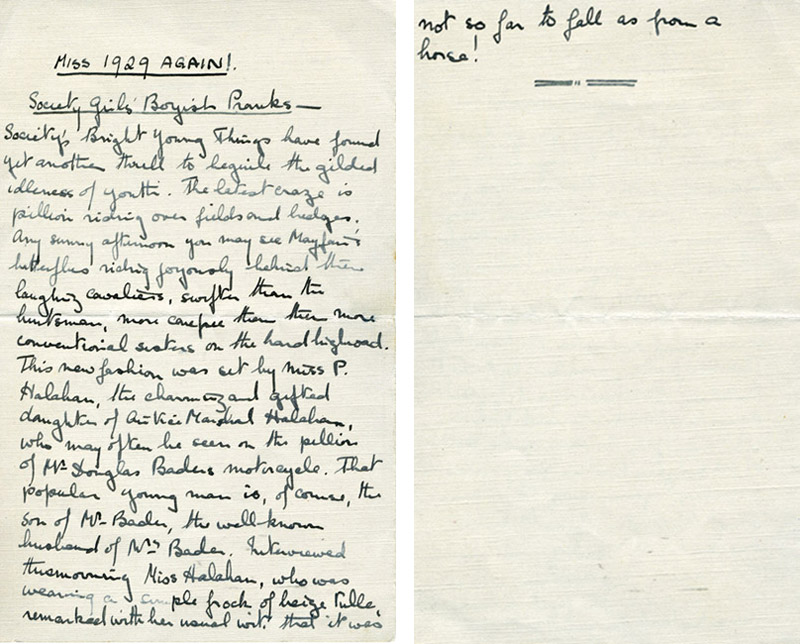 MISS 1929 AGAIN!.
Society Girls' Boyish Pranks—
Society's Bright Young Things have found
yet another thrill to beguile the gilded
idleness of youth. The latest craze is
pillion riding over fields and hedges.
Any sunny afternoon you may see Mayfair's
butterflies riding joyously behind their
laughing cavaliers, swifter than the
huntsman, more carefree than their more
conventional sisters on the hard highroad.
This new fashion was set by Miss P.
Halahan, the charming and gifted
daughter of Air Vice Marshal Halahan,
who may often be seen on the pillion
of Mr Douglas Baders motorcycle. That
popular young man is, of course, the
son of Mr Bader, the well-known
husband of Mrs Bader. Interviewed
this morning Miss Halahan, who was
wearing a simple frock of beige tulle,
remarked with her usual wit, that it was
not so far to fall as from a
horse!